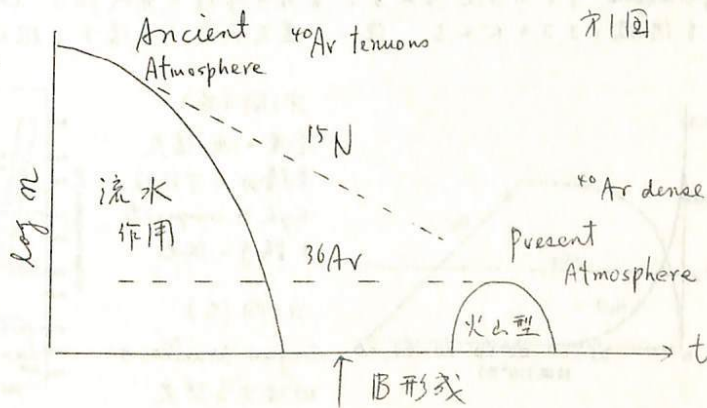 Ancient
Atmosphere
⁴⁰Ar tenuous
第1図
log n
流水
作用
¹⁵N
³⁶Ar
⁴⁰Ar dense
Present
Atmosphere
火山型
t
↑ IB 形成